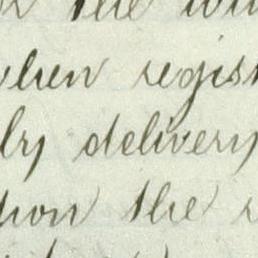 the
when regis
ly delivery
tion the